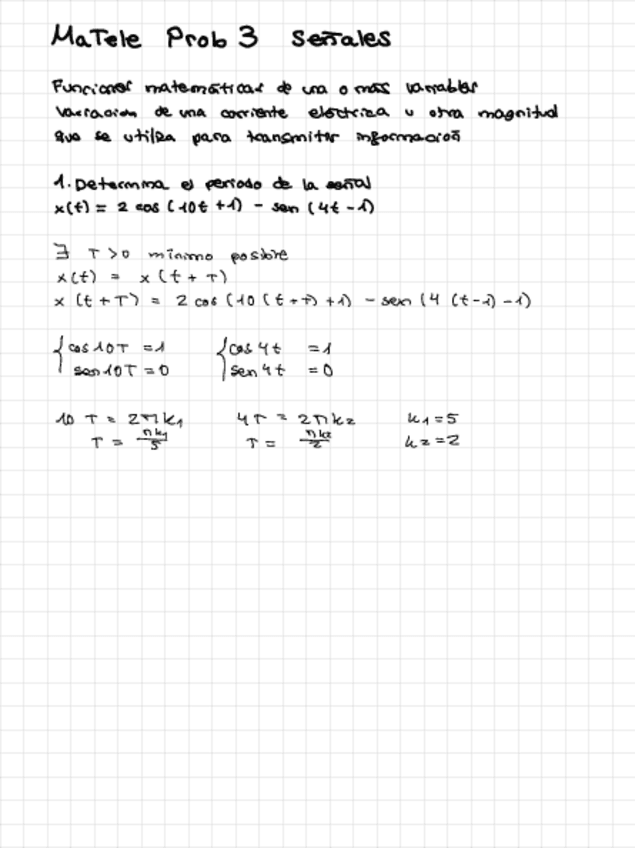 MaTele Prob 3 Señales
Funciones matemáticas de una o más variables
Variación de una corriente eléctrica u otra magnitud
que se utiliza para transmitir información
1. Determina el periodo de la señal
x(t) = 2 cos (10t + 1) - sen (4t - 1)
∃ T > 0 mínimo posible
x(t) = x (t + T)
x (t + T) = 2 cos (10 (t + T) + 1) - sen (4 (t - 1) - 1)
{ cos 10T = 1 { cos 4t = 1
sen 10T = 0 sen 4t = 0
10 T = 2πk₁ 4T = 2πk₂ k₁ = 5
T = πk₁/5 T = πk₂/2 k₂ = 2